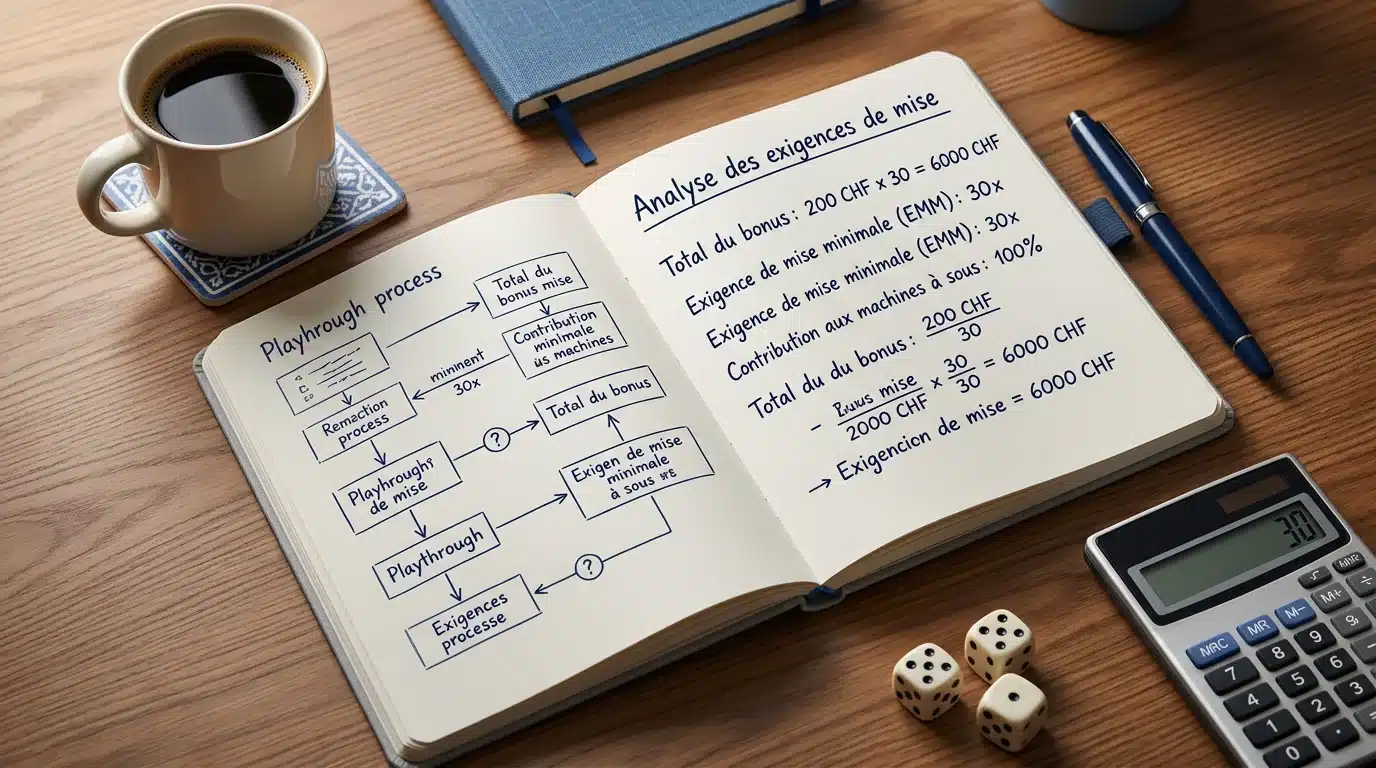 Playhrough process
Total du
bonus mise
Contribution
minimale
ùs machines
miniment
30x
Remaction
process
Total du bonus
?
Playhroughs
de mise
Exigen de mise
minimale
à sous
Playthrough
?
Exigences
processe
Analyse des exigences de mise
Total du bonus : 200 CHF x 30 = 6000 CHF
Exigence de mise minimale (EMM) : 30x
Exigence de mise minimale (EMM) : 30x
Contribution aux machines à sous : 100%
Total du du bonus : 200 CHF
30
- mise × 30 = 6000 CHF
2000 CHF 30
→ Exigencion de mise = 6000 CHF
30
MRC MR M- M+ ÷
7 8 9
4 5 6
1 2 3
0 . =